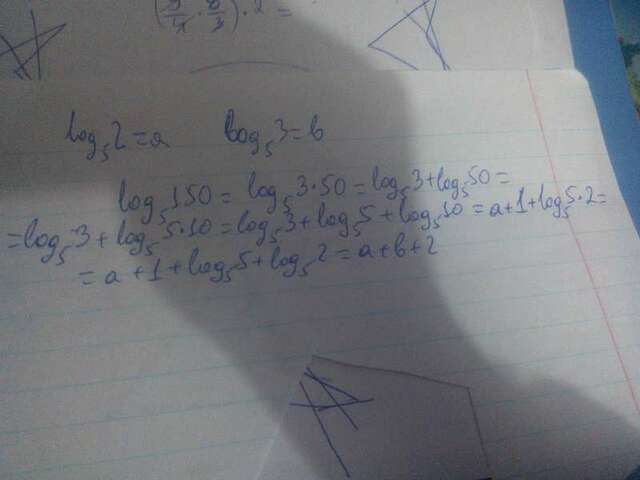 (9/4 · 8/3) · 2 =
log₅2=a log₅3=b
log₅150 = log₅3·50 = log₅3+log₅50 =
=log₅3 + log₅5·10 = log₅3 + log₅5 + log₅10 = a+1+log₅5·2=
= a+1+log₅5+log₅2 = a+b+2